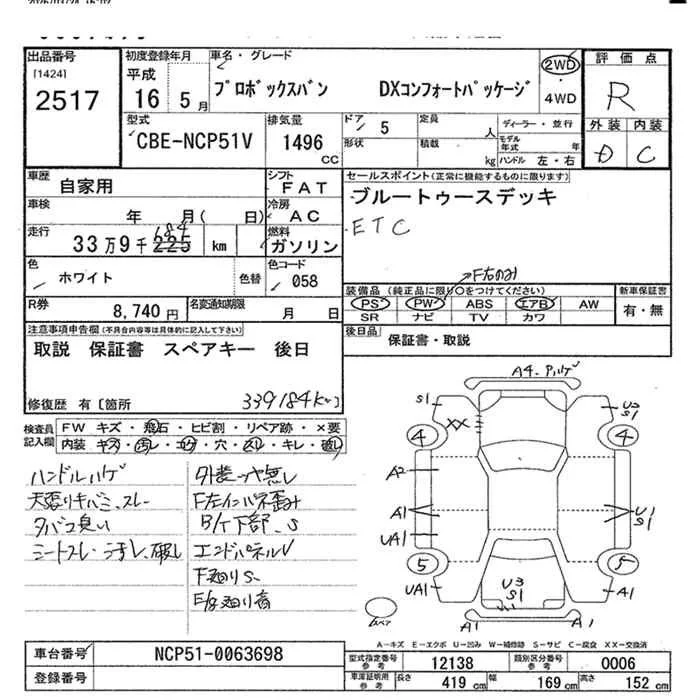 出品番号
[1424]
2517
初度登録年月
平成
16 年 5 月
車名・グレード
プロボックスバン DXコンフォートパッケージ
2WD
4WD
評価点
R
外装 内装
D C
型式
CBE-NCP51V
排気量
1496 CC
ドア
5
形状
定員
人
積載
kg
ディーラー・並行
モデル年式 年
ハンドル 左・右
車歴
自家用
シフト
FAT
セールスポイント(正常に機能するものに限ります)
ブルートゥースデッキ
ETC
車検
年 月( 日)
冷房
AC
走行
33万9千225 km
184
燃料
ガソリン
色
ホワイト
色替
色コード
058
F左のみ
装備品(純正品に限り○をつけてください)
PS PW ABS エアB AW
SR ナビ TV カワ
新車保証書
有・無
R券
8,740 円
名変通知期限
月 日
後日品
保証書・取説
注意事項申告欄(不具合内容等は具体的に記入して下さい)
取説 保証書 スペアキー 後日
修復歴 有〔箇所
339184km〕
検査員記入欄
FW キズ・飛石・ヒビ割・リペア跡・×要
内装・キズ・汚レ・コゲ・穴・スレ・キレ・破レ
ハンドルハゲ
天張りキバミ、スレ
タバコ臭い
シートスレ・汚レ、破レ
外装ツヤ無し
F左インパネ歪み
B/ド下部、S
エンドパネルV
F廻りS
A4.ハゲ
S1
XX
U3
S1
4
4
A2
A1
UA1
U1
S1
5
5
UA1
U3
S1
W
A1
A1
A1
スペア
A−キズ E−エクボ U−凹み W−補修跡 S−サビ C−腐食 XX−交換済
車台番号
NCP51-0063698
登録番号
型式指定番号
参考
12138
類別区分番号
参考
0006
車庫証明用
参考
長さ
419 cm
幅
169 cm
高さ
152 cm